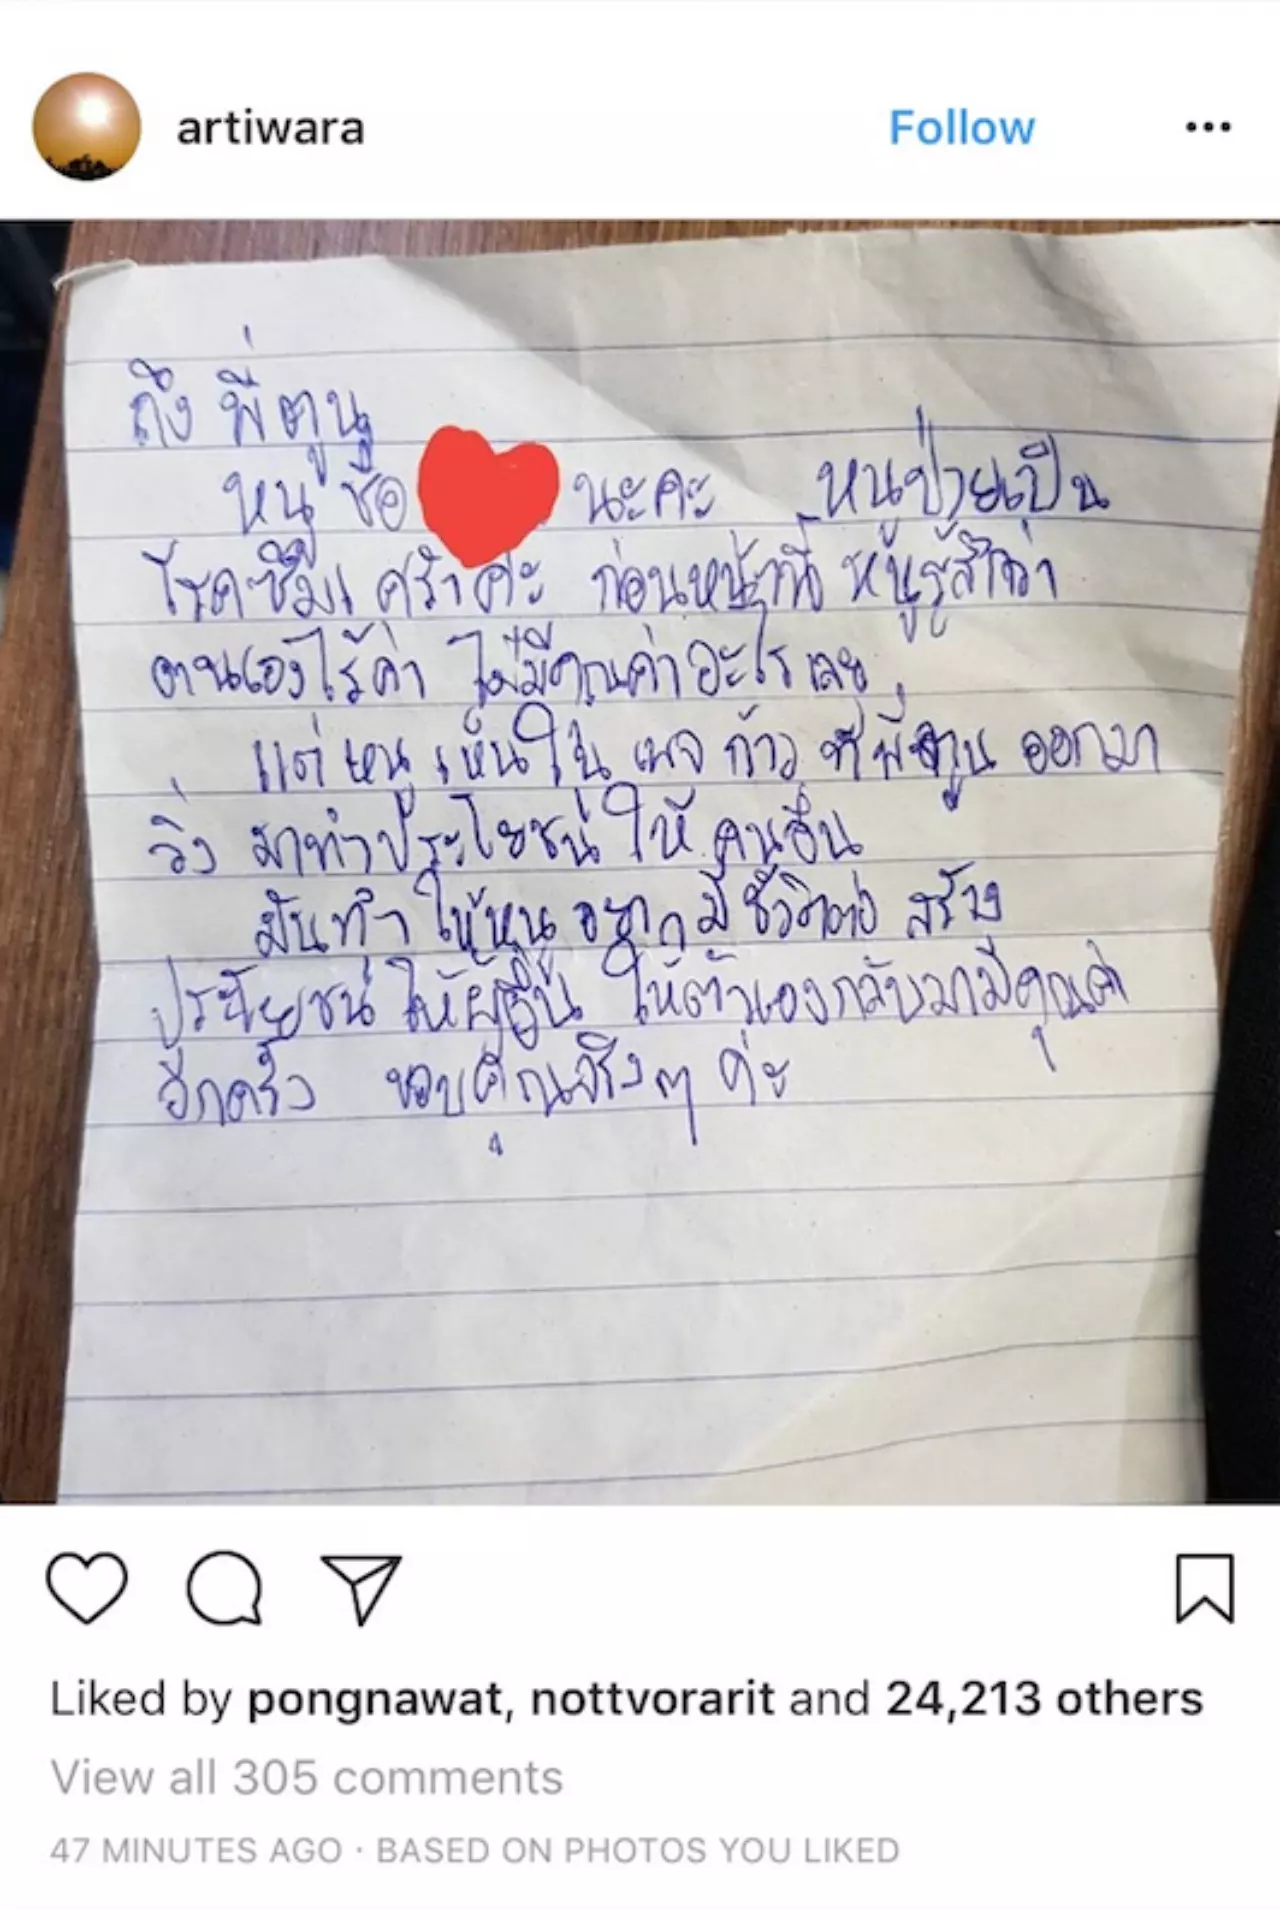 artiwara
Follow
ถึง พี่ตูน
หนู ชื่อ นะคะ หนูป่วยเป็น
โรคซึมเศร้าค่ะ ก่อนหน้านี้ หนูรู้สึกว่า
ตนเองไร้ค่า ไม่มีคุณค่าอะไรเลย
แต่ หนู เห็นใน เพจ ก้าว ที่พี่ตูน ออกมา
วิ่ง มาทำประโยชน์ ให้ คนอื่น
มันทำ ให้หนู อยาก มี ชีวิตต่อ สร้าง
ประโยชน์ ให้ผู้อื่น ให้ตัวเองกลับมามีคุณค่า
อีกครั้ง ขอบคุณจริงๆ ค่ะ
Liked by pongnawat, nottvorarit and 24,213 others
View all 305 comments
47 MINUTES AGO · BASED ON PHOTOS YOU LIKED